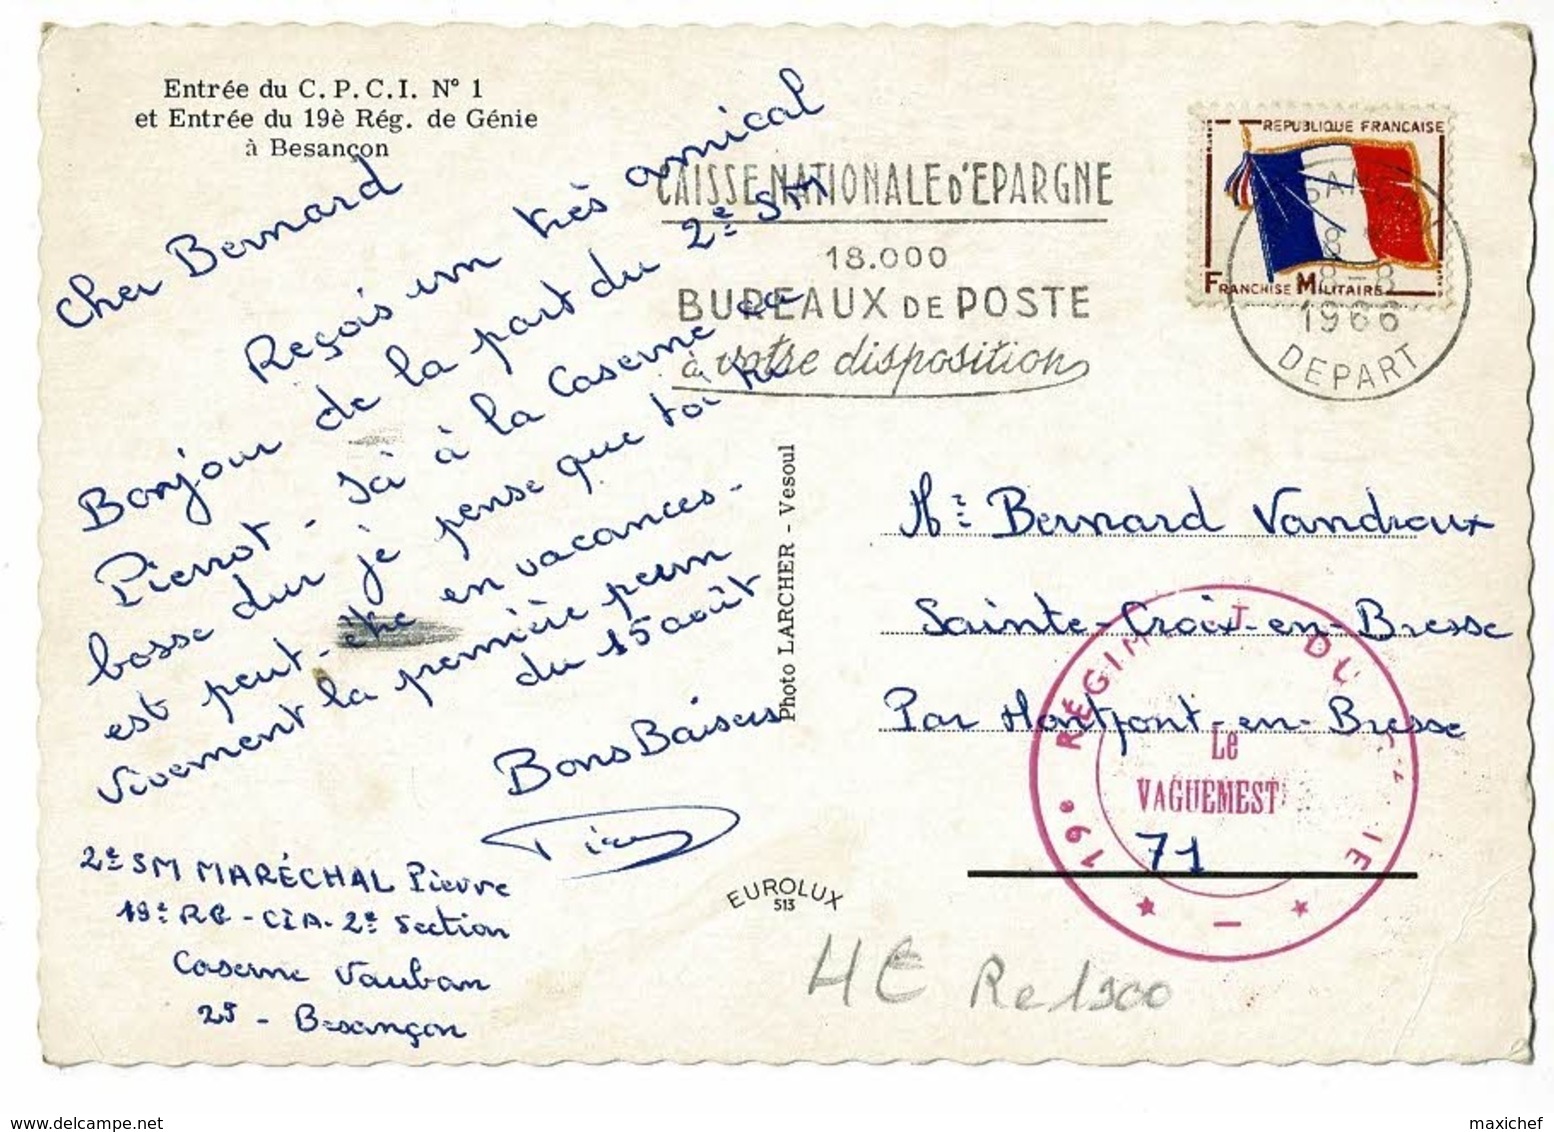 Entrée du C. P. C. I. N° 1
et Entrée du 19è Rég. de Génie
à Besançon
Cher Bernard
Reçois un très amical
Bonjour de la part du 2e SM
Pierrot - Ici à la Caserne ça
bosse dur je pense que toi tu
est peut-être en vacances -
vivement la première perm
du 15 août
Bons Baisers
2e SM MARÉCHAL Pierre
19e RG - CIA - 2e Section
Caserne Vauban
25 - Besançon
Photo LARCHER - Vesoul
EUROLUX
513
CAISSE NATIONALE D'EPARGNE
18.000
BUREAUX DE POSTE
à votre disposition
REPUBLIQUE FRANCAISE
FRANCHISE MILITAIRE
8-8
1966
DEPART
Mr Bernard Vandroux
Sainte-Croix-en-Bresse
Par Montpont-en-Bresse
71
19e RÉGIM T DU IE
Le
VAGUEMEST
4€ Re 1900
maxichef